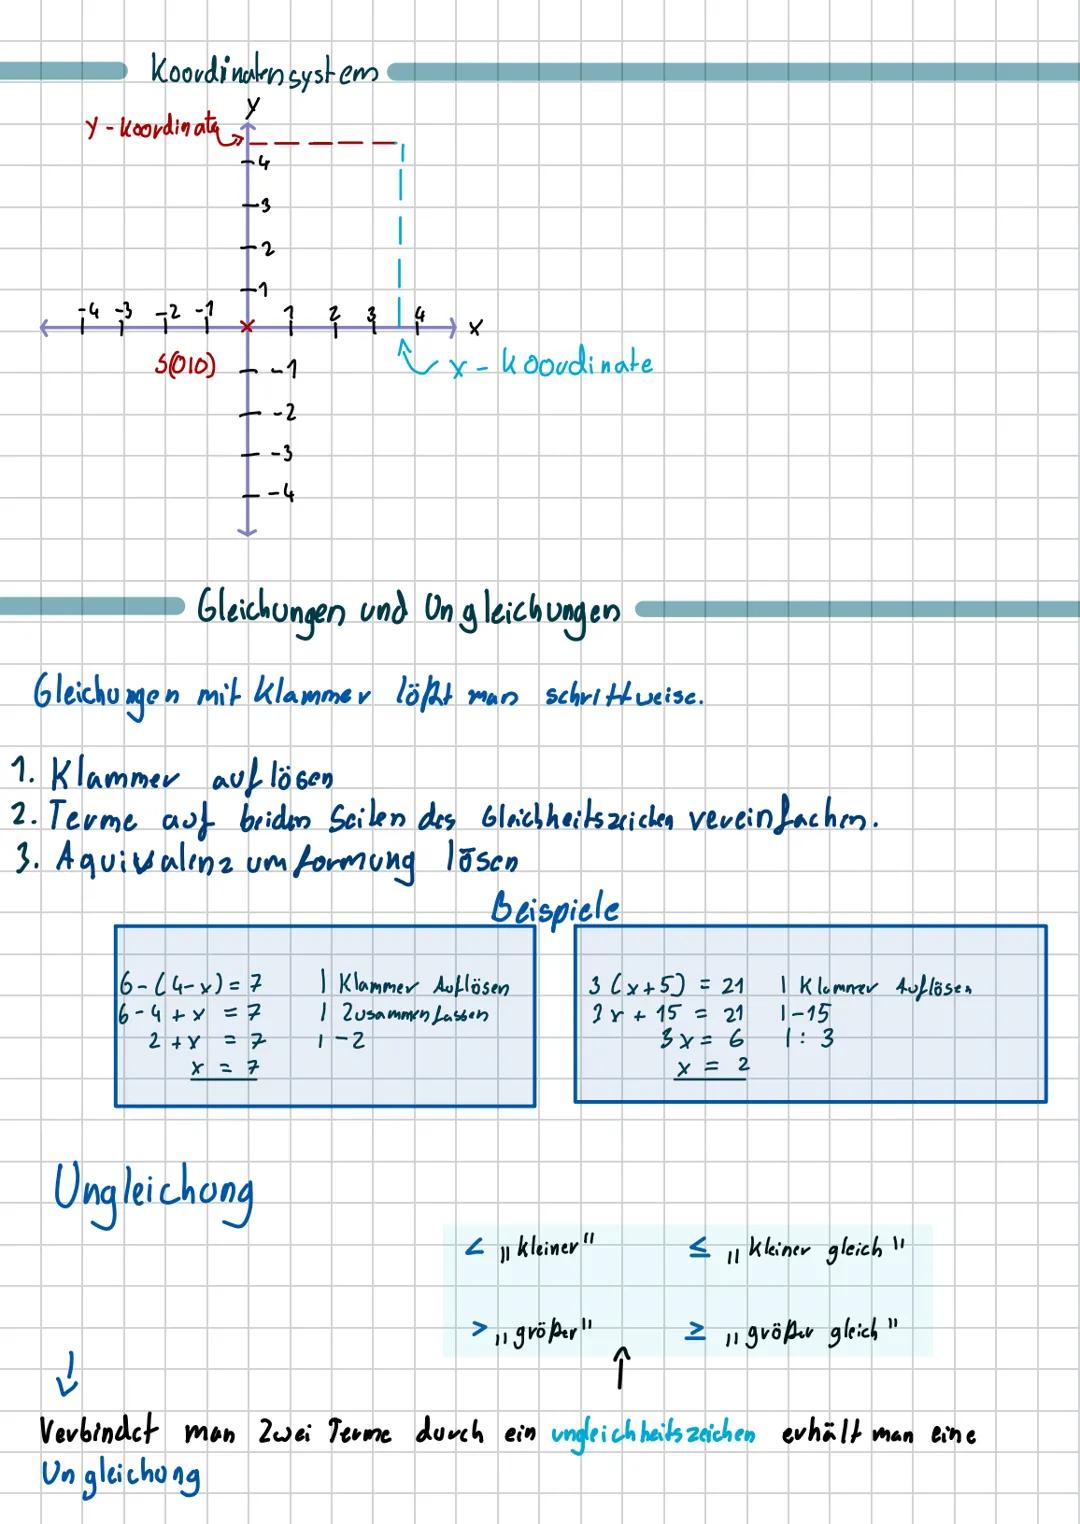 Koordinatensystem
y
y-Koordinate
4
3
2
1
-4 -3 -2 -1 1 2 3 4 x
S(0|0)
-1
x-Koordinate
-2
-3
-4
Gleichungen und Ungleichungen
Gleichungen mit Klammer lößt man schrittweise.
1. Klammer auflösen
2. Terme auf beiden Seiten des Gleichheitszeichen vereinfachen.
3. Aquivalenzumformung lösen
Beispiele
6-(4-x) = 7 | Klammer Auflösen
6-4+x = 7 | Zusammenfassen
2+x = 7 | -2
x = 7
3(x+5) = 21 | Klammer Auflösen
3x + 15 = 21 | -15
3x = 6 | : 3
x = 2
Ungleichung
< „kleiner" ≤ „kleiner gleich"
> „größer" ≥ „größer gleich"
Verbindet man zwei Terme durch ein ungleichheitszeichen erhält man eine
Ungleichung